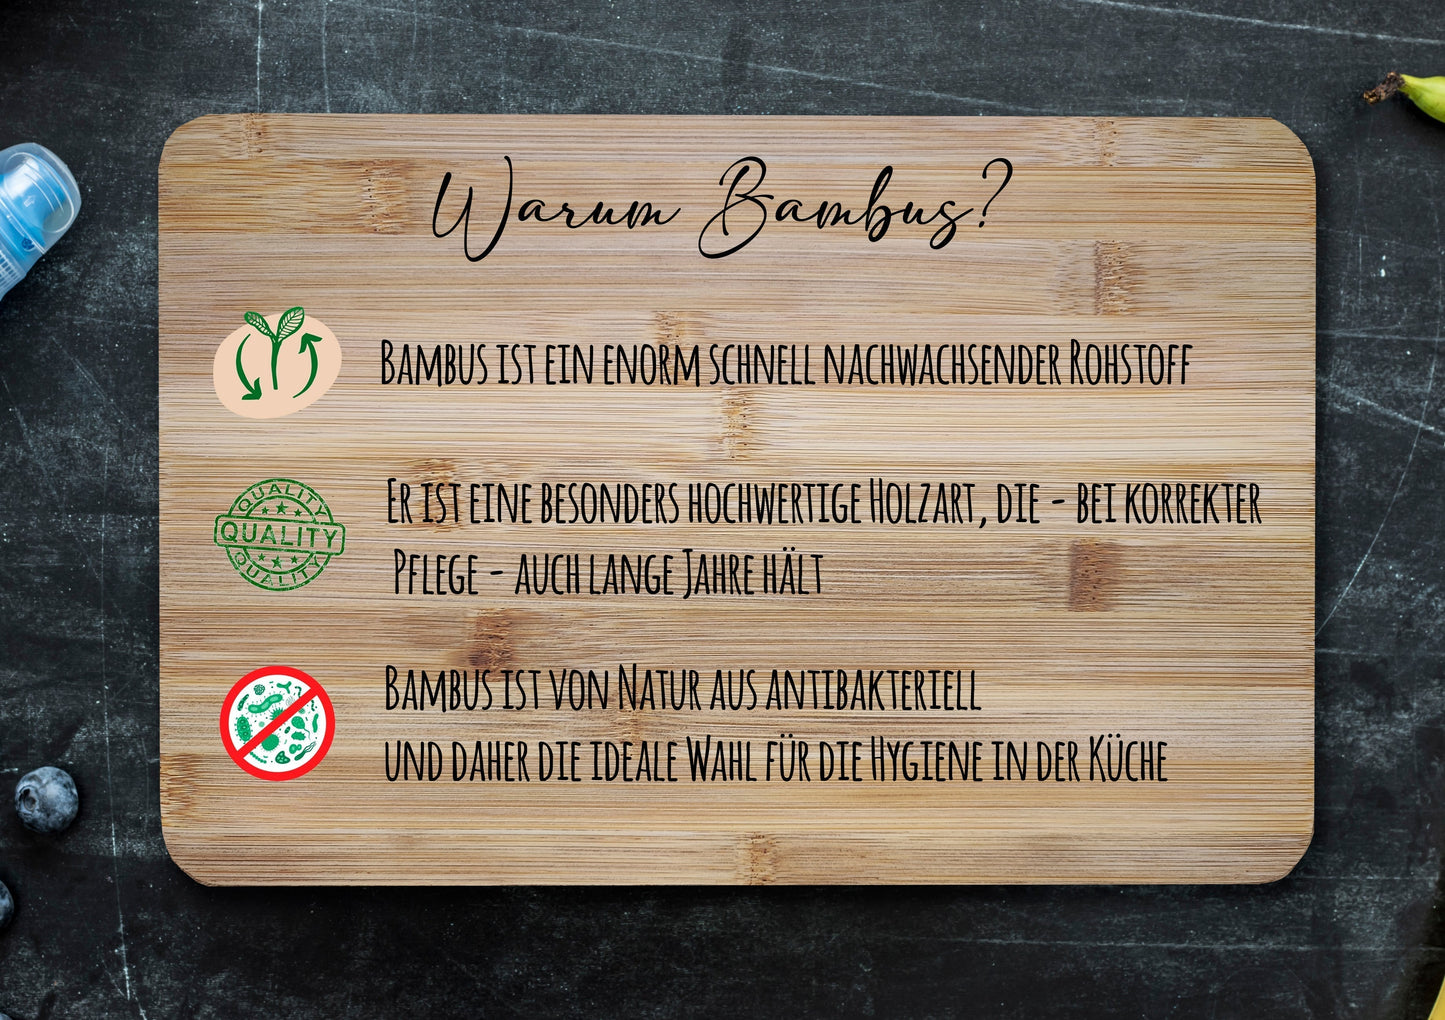 Warum Bambus?
Bambus ist ein enorm schnell nachwachsender Rohstoff
QUALITY
QUALITY
QUALITY
Er ist eine besonders hochwertige Holzart, die - bei korrekter
Pflege - auch lange Jahre hält
Bambus ist von Natur aus antibakteriell
und daher die ideale Wahl für die Hygiene in der Küche